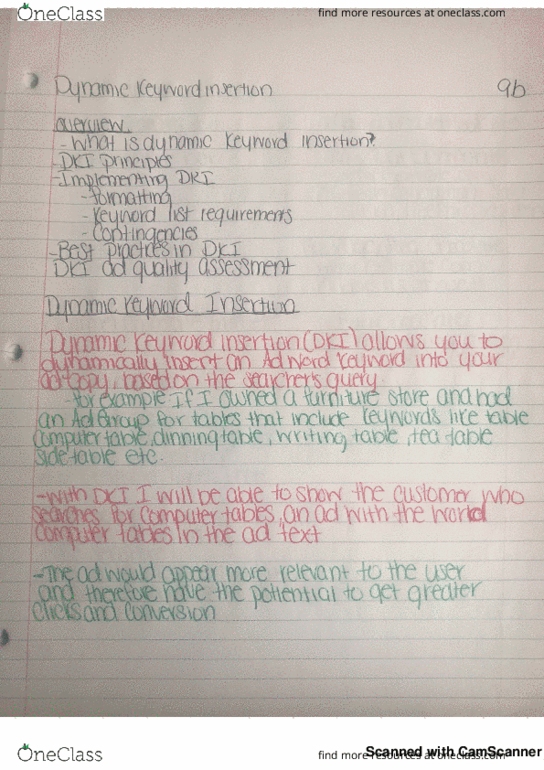 OneClass
find more resources at oneclass.com
Dynamic Keyword insertion
9b
overview
- What is dynamic keyword insertion?
- DKI principles
- Implementing DKI
- formatting
- Keyword list requirements
- Contingencies
- Best practices in DKI
DKI ad quality assessment
Dynamic Keyword Insertion
Dynamic Keyword insertion (DKI) allows you to
dynamically insert an Ad Word keyword into your
ad copy, based on the searcher's query
- for example if I owned a furniture store and had
an Ad Group for tables that include keywords like table
computer table, dinning table, writing table, tea table
side table etc.
- with DKI I will be able to show the customer who
searches for computer tables, an ad with the world
computer tables in the ad text
- The ad would appear more relevant to the user
and therefore have the potiential to get greater
clicks and conversion
OneClass
find more resources at oneclass.com
Scanned with CamScanner